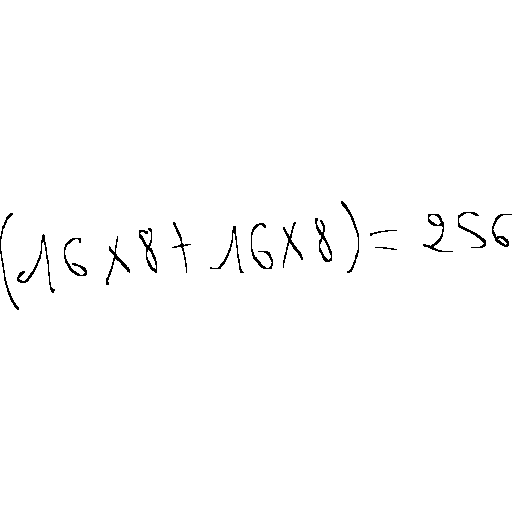 (16×8+16×8)=256